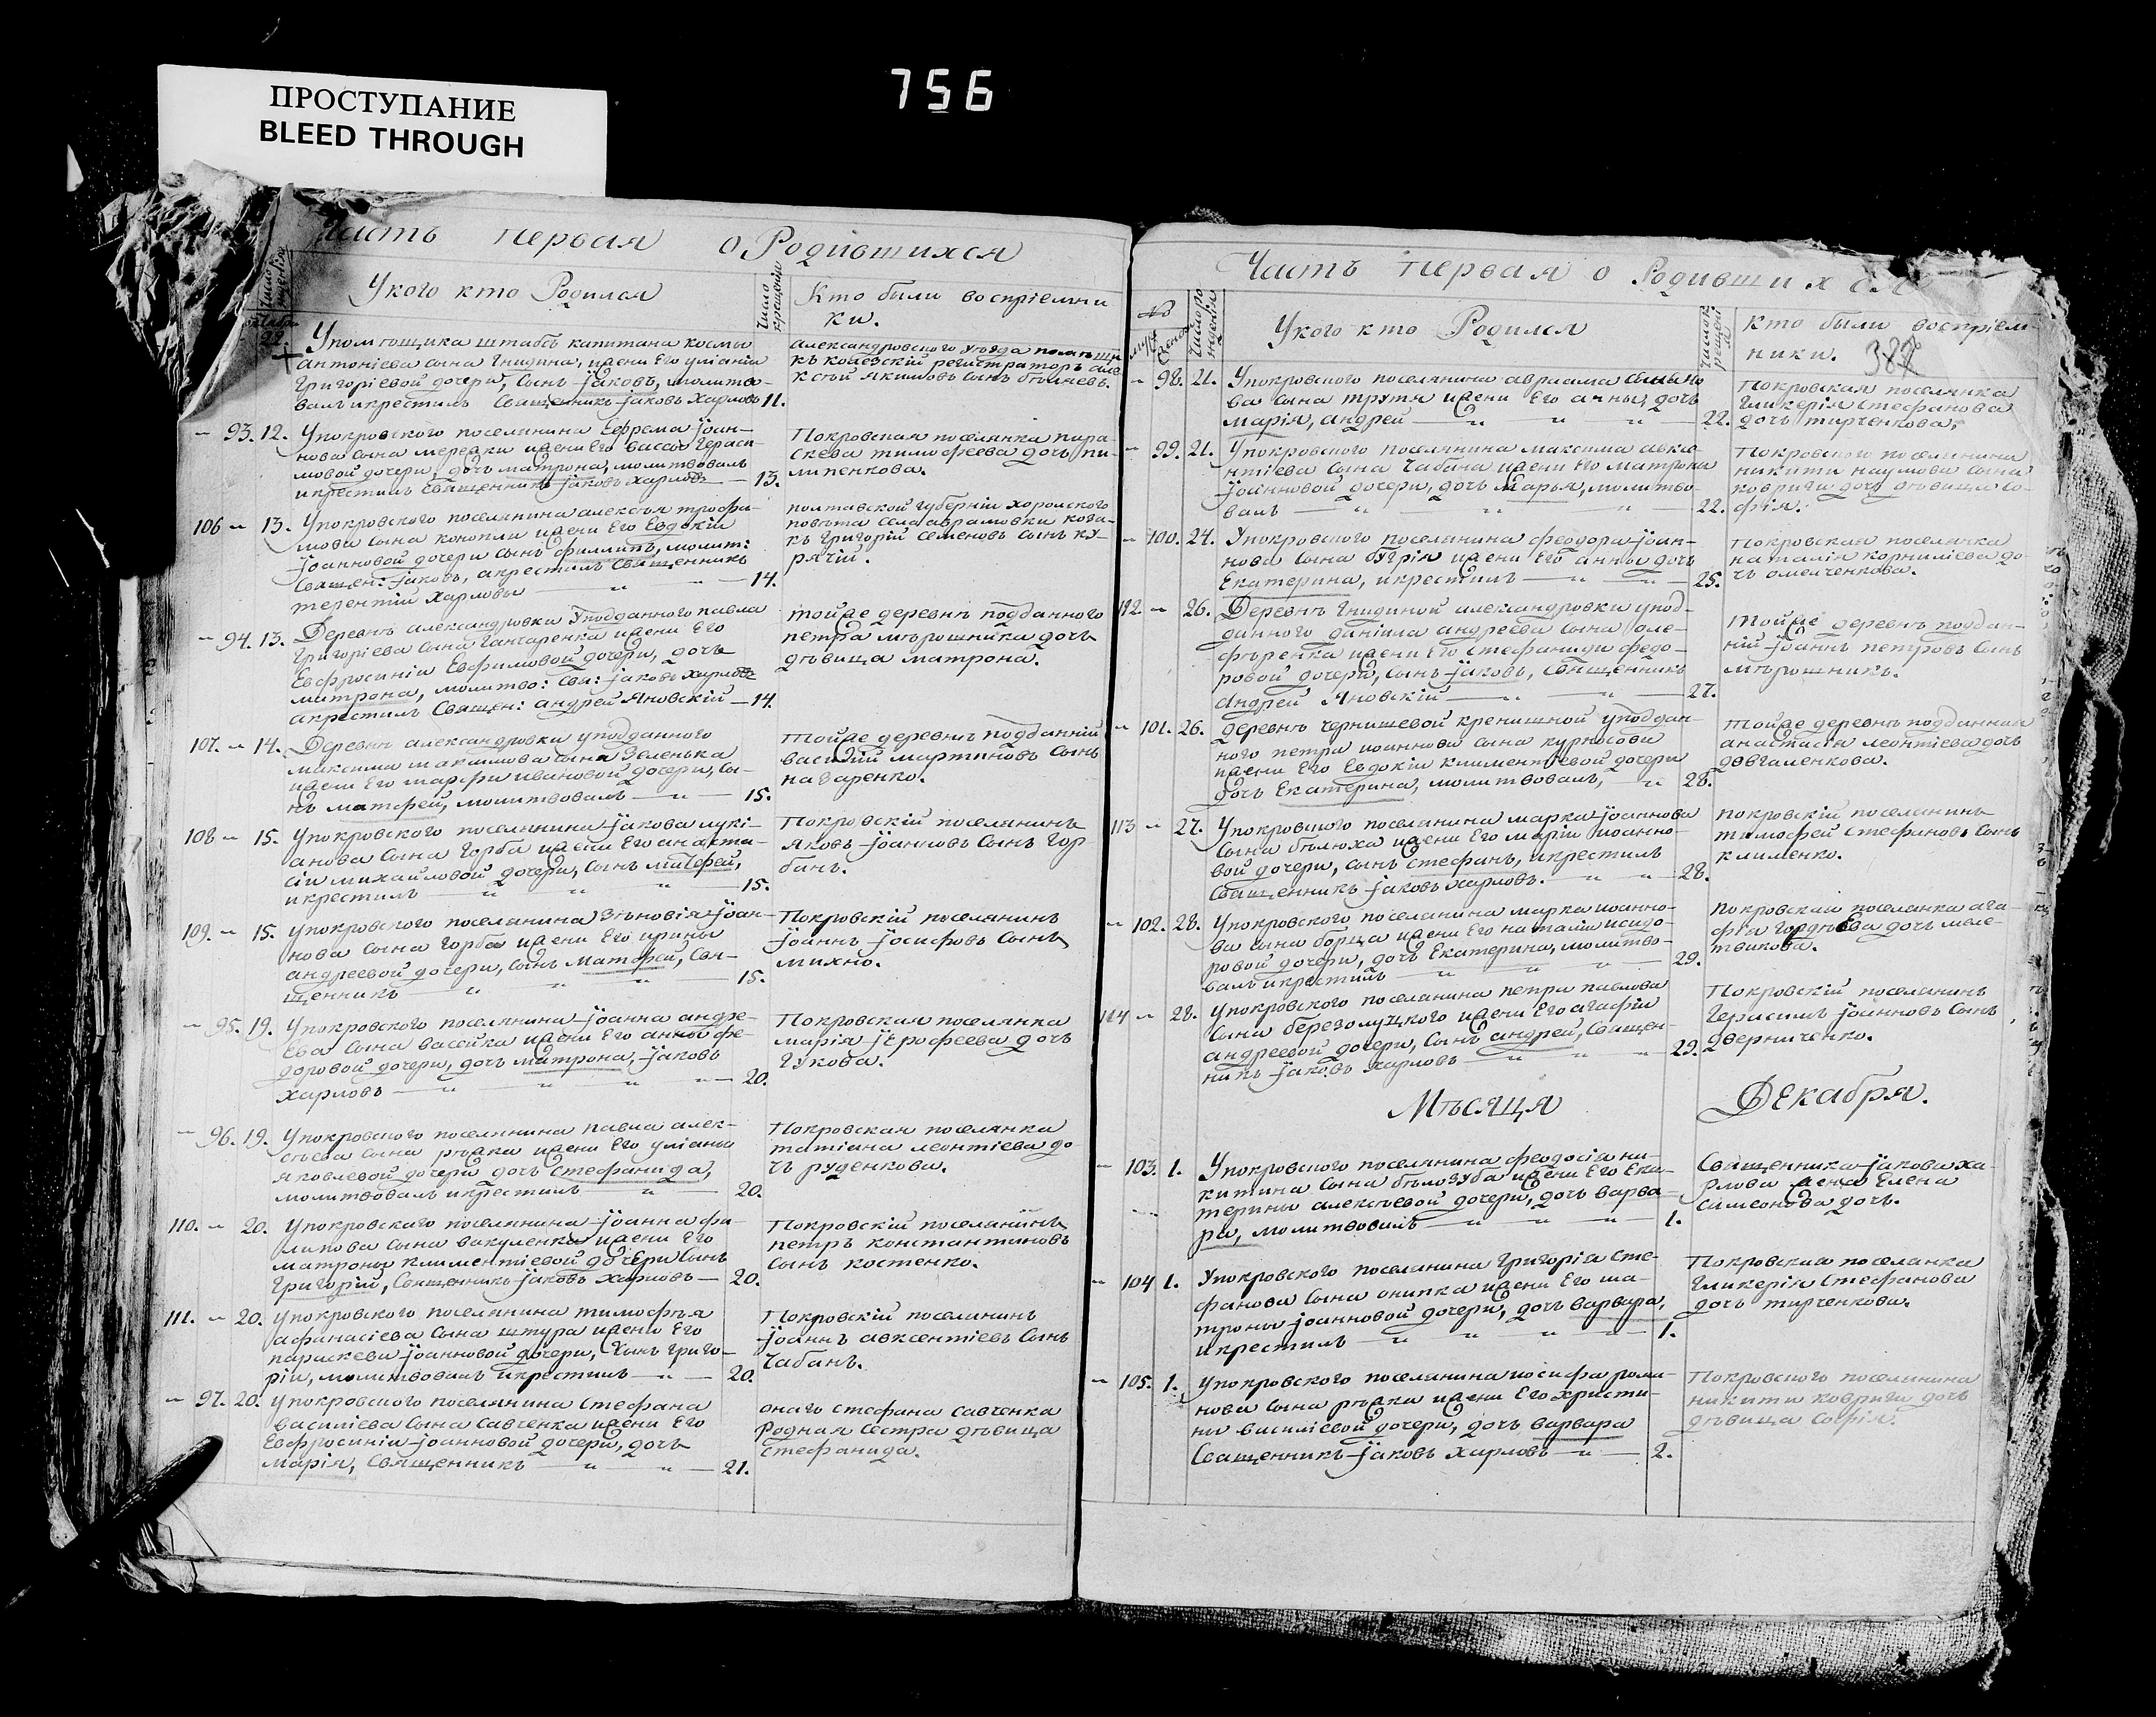 756
ПРОСТУПАНИЕ
BLEED THROUGH
Часть первая о Родившихся
У кого кто Родился
Число крещенія
Кто были воспріемни
ки.
У помѣщика штабсъ капитана космы
антоніева сына Гнидина, жены Его уліаніи
Григоріевой дочери, сынъ Іаковъ, молитво-
валъ и крестилъ Священникъ Іаковъ Харловъ 11.
Александровского уѣзда помѣщи
къ колезскій регистраторъ але
ксѣй якимовъ сынъ бѣляевъ.
93. 12. У покровского поселянина Ефрема Іоан-
нова сына мережки жены Его вассы Гераси-
мовой дочери, дочь матрона, молитвовалъ
и крестилъ Священникъ Іаковъ Харловъ — 13.
Покровская поселянка пара-
скева тимофеева дочь пи-
липенкова.
106 — 13. У покровского поселянина алексѣя трофи-
мова сына конопли жены Его Евдокіи
Іоанновой дочери сынъ филлипъ, молит:
Священ: Іаковъ, а крестилъ Священникъ
терентій Харловы — 14.
полтавской губерніи хорольского
повѣта села аврамовки коза-
къ Григорій Семеновъ сынъ ку-
рячій.
— 94. 13. Деревнѣ александровки у подданного павла
Григоріева сына Ганчаренка жены Его
Евфросиніи Евфимовой дочери, дочь
матрона, молитво: Свя: Іаковъ Харловъ
а крестилъ Священ: андрей Яновскій — 14.
тойже деревнѣ подданного
петра мѣрошника дочь
дѣвица матрона.
107. — 14. Деревнѣ александровки у подданного
максима максимова сына Зеленька
жены Его марфы ивановой дочери, сы-
нъ матфей, молитвовалъ — 15.
тойже деревнѣ подданній
василій мартиновъ сынъ
нагаренко.
108 — 15. У покровского поселянина Іакова лукі-
анова сына Горба жены Его анаста-
сіи михайловой дочери, сынъ матфей,
и крестилъ — 15.
Покровскій поселянинъ
Яковъ Іоанновъ сынъ Гор-
банъ.
109. — 15. У покровского поселянина Зѣновія Іоан-
нова сына Горба жены Его ирины
андреевой дочери, сынъ Матфей, Свя-
щенникъ — 15.
Покровскій поселянинъ
Іоаннъ Іосифовъ сынъ
михно.
— 95. 19. У покровского поселянина Іоанна андре-
Ева сына васейка жены Его анны фе-
доровой дочери, дочь матрона, Іаковъ
Харловъ — 20.
Покровская поселянка
марія Іерофеева дочь
Гукова.
— 96. 19. У покровского поселянина павла алек-
сѣева сына рѣжка жены Его уліаны
яковлевой дочери дочь Стефанида,
молитвовалъ и крестилъ — 20.
Покровская поселянка
татіана леонтіева до-
чь руденкова.
110. — 20. У покровскаго поселянина Іоанна фи-
липова сына вакуленка жены Его
матроны климентіевой дочери сынъ
Григорій, Священникъ Іаковъ Харловъ — 20.
Покровскій поселянинъ
петръ константиновъ
сынъ костенко.
111. — 20. У покровского поселянина тимофѣя
афанасіева сына штура жены Его
параскеви Іоанновой дочери, сынъ Григо-
рій, молитвовалъ и крестилъ — 20.
Покровскій поселянинъ
Іоаннъ авксентіевъ сынъ
Чабанъ.
— 97. 20. У покровского поселянина Стефана
василіева сына савченка жены Его
Евфросиніи Іоанновой дочери, дочь
марія, Священникъ — 21.
онаго стефана савченка
родная сестра дѣвица
Стефанида.
Часть первая о Родившихся
У кого кто Родился
Кто были воспріем-
ники.
— 98. 21. У покровского поселянина авраама
ва сына трутя жены Его анны, дочь
марія, андрей — 22.
Покровская поселянка
Гликерія Стефанова
дочь тирченкова.
— 99. 21. У покровского поселянина максима авксе-
нтіева сына Чабана жены Его матроны
Іоанновой дочери, дочь марья, молитво-
валъ — 22.
Покровского поселянина
никити наумова сына
ковриги дочь дѣвица Со-
фія.
— 100. 24. У покровского поселянина феодора Іоан-
нова сына бугрія жены Его анны дочь
Екатерина, и крестилъ — 25.
Покровская поселянка
наталія корниліева до-
чь омелченкова.
112 — 26. Деревнѣ Гнидиной александровки у под-
данного даніила андреева сына оле-
фѣренка жены Его Стефаниди федо-
ровой дочери, сынъ Іаковъ, Священникъ
Андрей Яновскій — 27.
тойже деревнѣ поддан-
ній Іоаннъ петровъ сынъ
мѣрошникъ.
— 101. 26. деревнѣ чернишевой кренишной у поддан-
ного петра иоаннова сына курносова
жены Его Евдокіи климентіевой дочери
дочь Екатерина, молитвовалъ, — 28.
тойже деревнѣ подданная
анастасія леонтіева дочь
довгаленкова.
113 — 27. У покровского поселянина марка Іоаннова
сына бѣлюха жены Его маріи иоанно-
вой дочери, сынъ стефанъ, и крестилъ
Священникъ Іаковъ Харловъ. — 28.
Покровскій поселянинъ
тимофей стефановъ сынъ
клименко.
— 102. 28. У покровского поселянина марка иоанно-
ва сына борща жены Его наталіи исидо-
ровой дочери, дочь Екатерина, молитво-
валъ и крестилъ — 29.
Покровская поселянка ага-
фія Гордѣева дочь
114 — 28. У покровского поселянина петра павлова
сына березолуцкого жены Его агафіи
андреевой дочери, сынъ андрей, Священ-
никъ Іаковъ Харловъ — 29.
Покровскій поселянинъ
Герасимъ Іоанновъ сынъ
дверниченко.
Мѣсяца Декабря.
— 103. 1. У покровского поселянина феодосія ни-
китина сына бѣлозуба жены Его Ека-
терины алексѣевой дочери, дочь варва-
ра, молитвовалъ — 1.
Священника Іакова Ха-
рлова жена Елена
Симеонова дочь.
— 104 1. У покровского поселянина Григорія Сте-
фанова сына онипка жены Его ма-
троны Іоанновой дочери, дочь варвара,
и крестилъ — 1.
Покровская поселянка
Гликерія Стефанова
дочь тирченкова.
— 105. 1. У покровского поселянина иосифа рома-
нова сына рѣжка жены Его христи-
ны василіевой дочери, дочь варвара
Священникъ Іаковъ Харловъ — 2.
Покровского поселянина
никити ковриги дочь
дѣвица Софія.